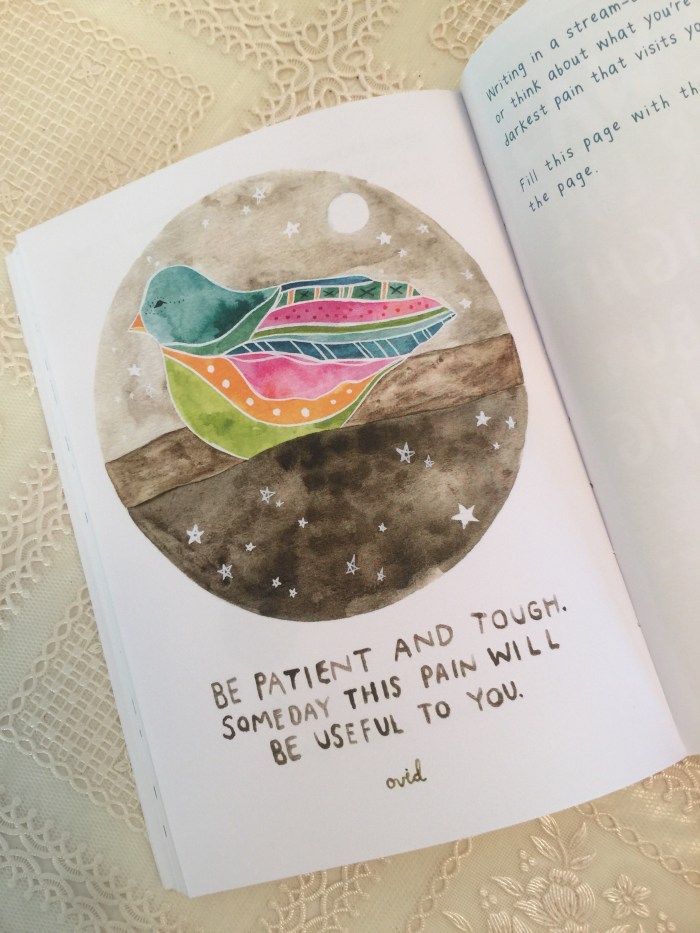 BE PATIENT AND TOUGH.
SOMEDAY THIS PAIN WILL
BE USEFUL TO YOU.
ovid
Writing in a
or think about what you're
darkest pain that visits
Fill this page with
the page.